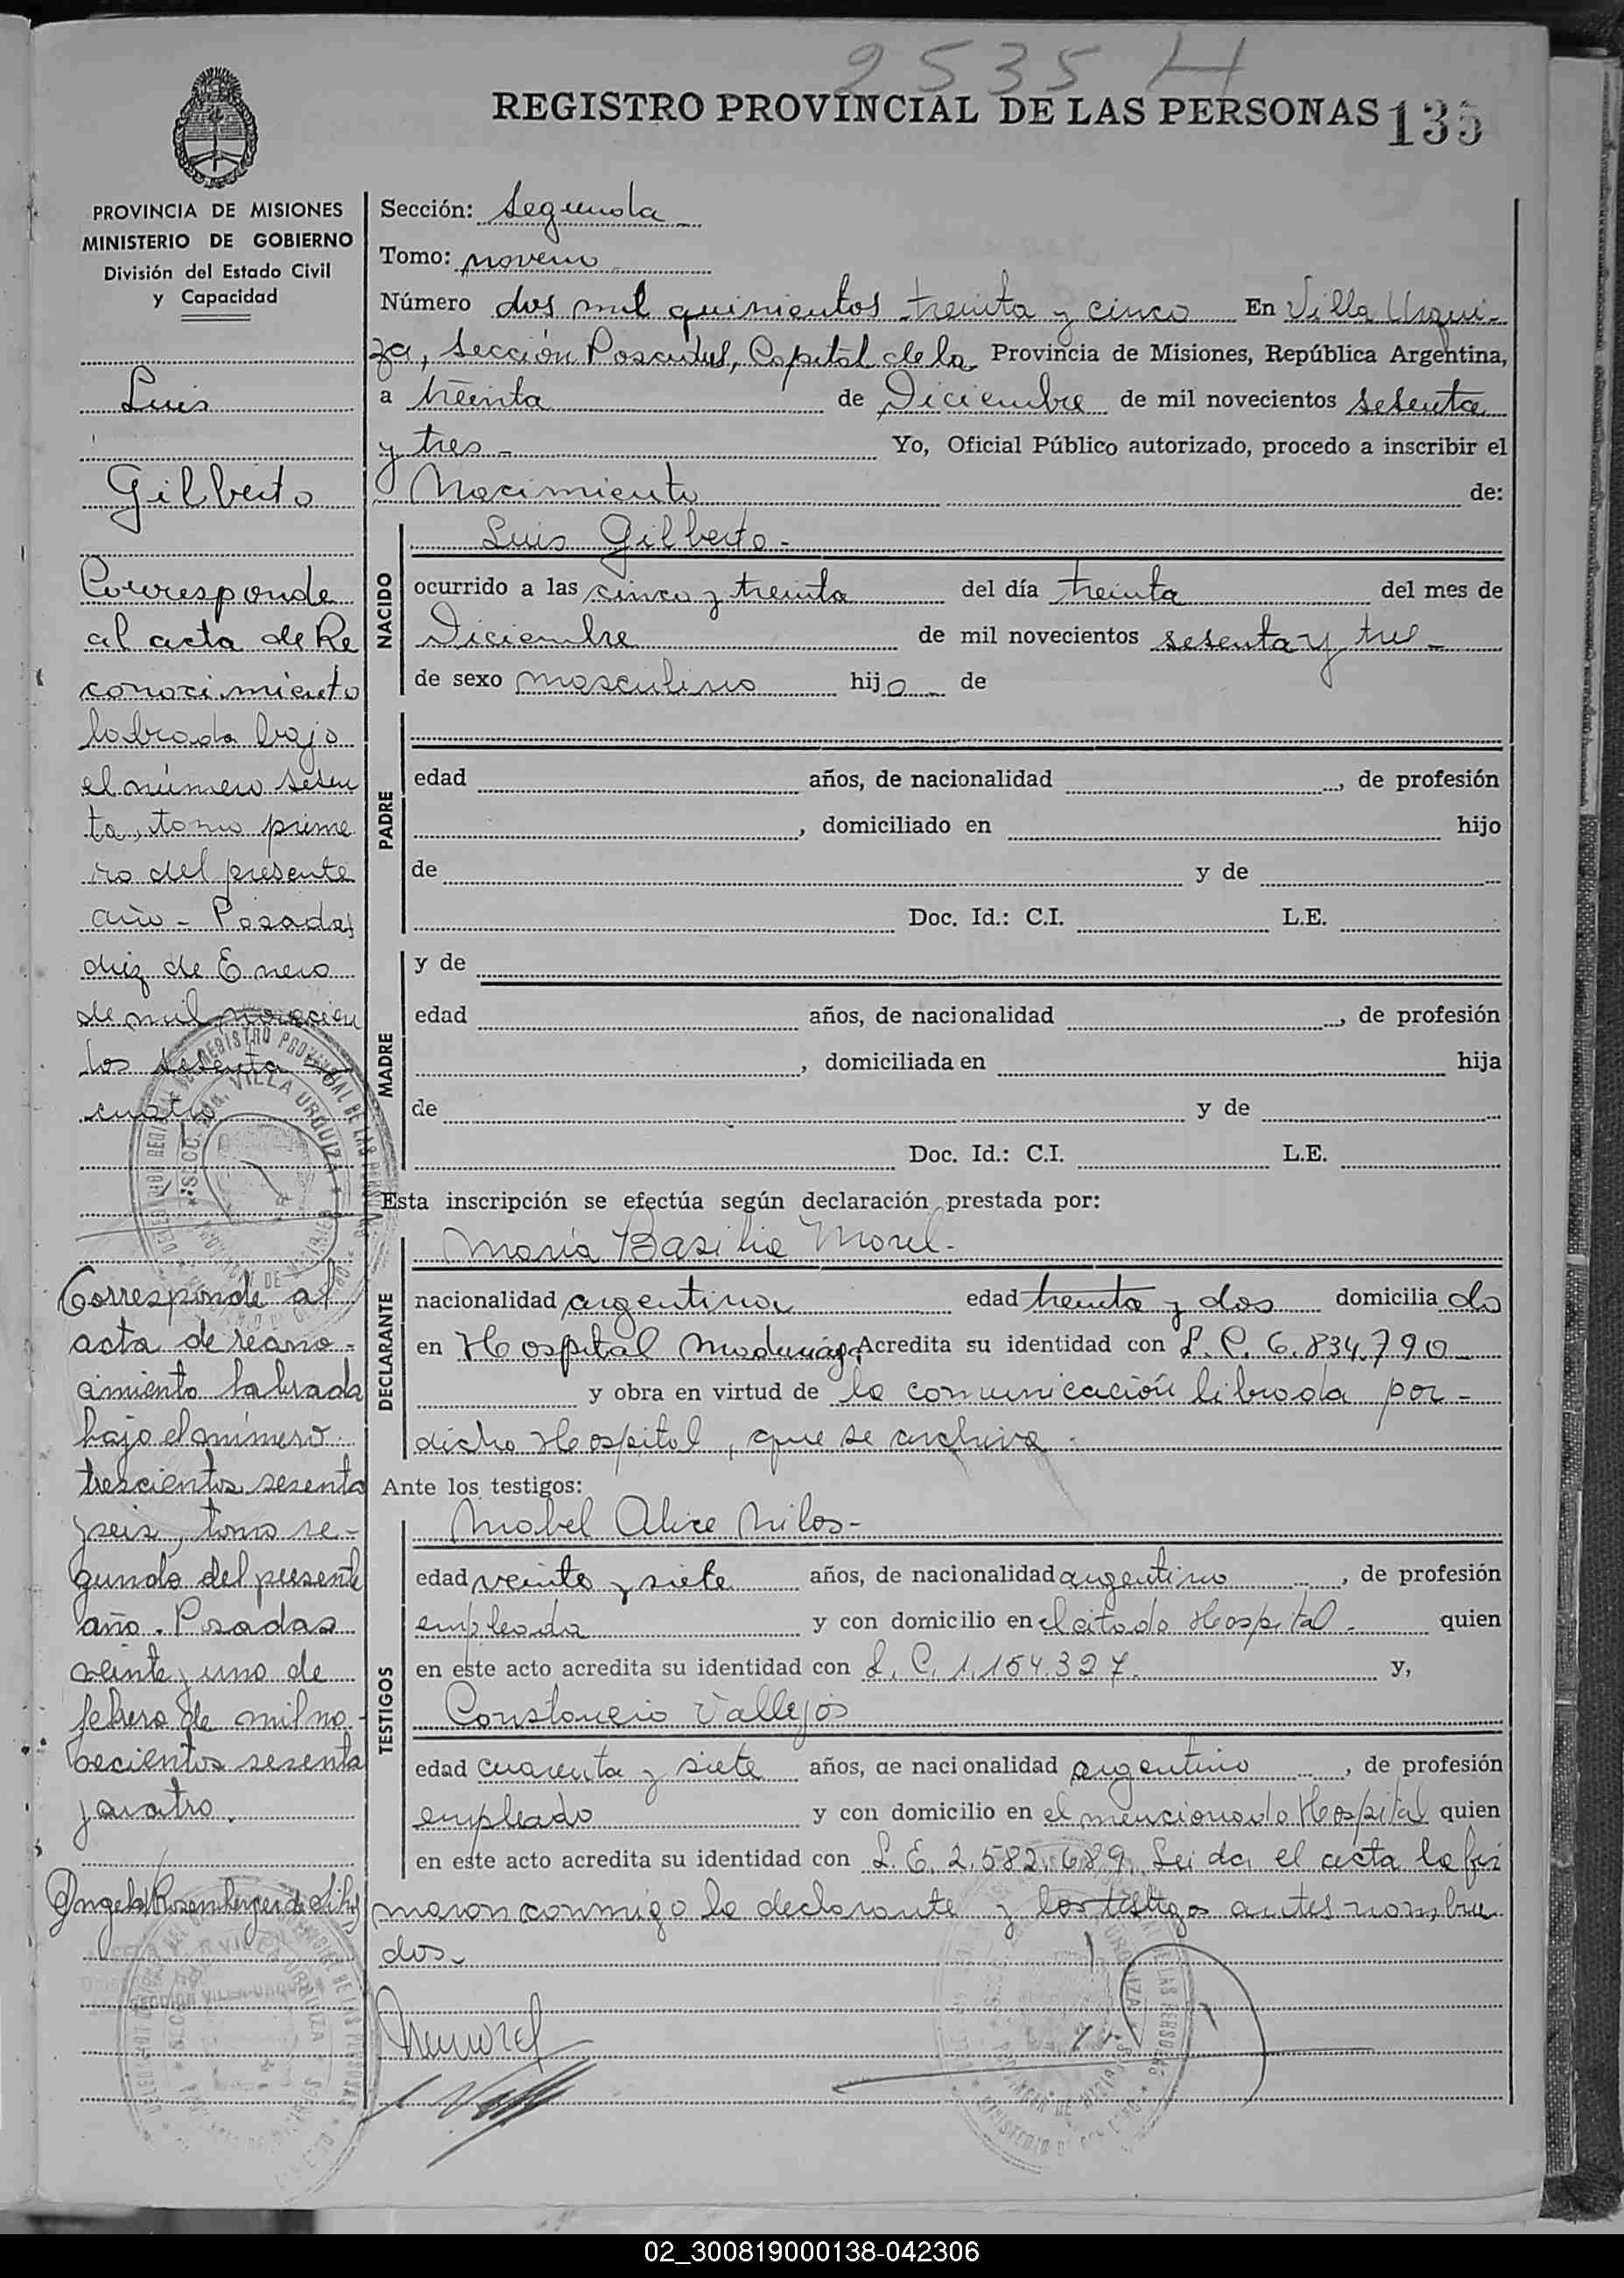 2535 H
REGISTRO PROVINCIAL DE LAS PERSONAS 135
PROVINCIA DE MISIONES
MINISTERIO DE GOBIERNO
División del Estado Civil
y Capacidad
Luis
Gilberto
Corresponde
al acta de Re
conocimiento
labrada bajo
el número sesen
ta, tomo prime
ro del presente
año - Posadas
diez de Enero
de mil novecien
tos sesenta y
cuatro
Corresponde al
acta de recono-
cimiento labrada
bajo el número
trescientos sesenta
y seis, tomo se-
gundo del presente
año. Posadas
veinte y uno de
febrero de mil no-
vecientos sesenta
y cuatro.
Sección: Segunda
Tomo: noveno
Número dos mil quinientos treinta y cinco En Villa Urqui-
za, Sección Posadas, Capital de la Provincia de Misiones, República Argentina,
a treinta de Diciembre de mil novecientos sesenta
y tres - Yo, Oficial Público autorizado, procedo a inscribir el
Nacimiento de:
NACIDO
Luis Gilberto -
ocurrido a las cinco y treinta del día treinta del mes de
Diciembre de mil novecientos sesenta y tres -
de sexo masculino hijo de
PADRE
edad años, de nacionalidad , de profesión
, domiciliado en hijo
de y de
Doc. Id.: C.I. L.E.
MADRE
y de
edad años, de nacionalidad , de profesión
, domiciliada en hija
de y de
Doc. Id.: C.I. L.E.
Esta inscripción se efectúa según declaración prestada por:
DECLARANTE
María Basilia Morel -
nacionalidad argentina edad treinta y dos domicilia da
en Hospital Madariaga Acredita su identidad con L. C. 6.834.790
y obra en virtud de la comunicación librada por -
dicho Hospital, que se archiva -
Ante los testigos:
TESTIGOS
Mabel Alice Milos -
edad veinte y siete años, de nacionalidad argentina , de profesión
empleada y con domicilio en el citado Hospital - quien
en este acto acredita su identidad con L. C. 1.154.327. y,
Constancio Vallejos
edad cuarenta y siete años, de nacionalidad argentino , de profesión
empleado y con domicilio en el mencionado Hospital quien
en este acto acredita su identidad con L. E. 2.582.689. Leida el acta la fir
maron conmigo la declarante y los testigos antes nombra
dos -
02_300819000138-042306